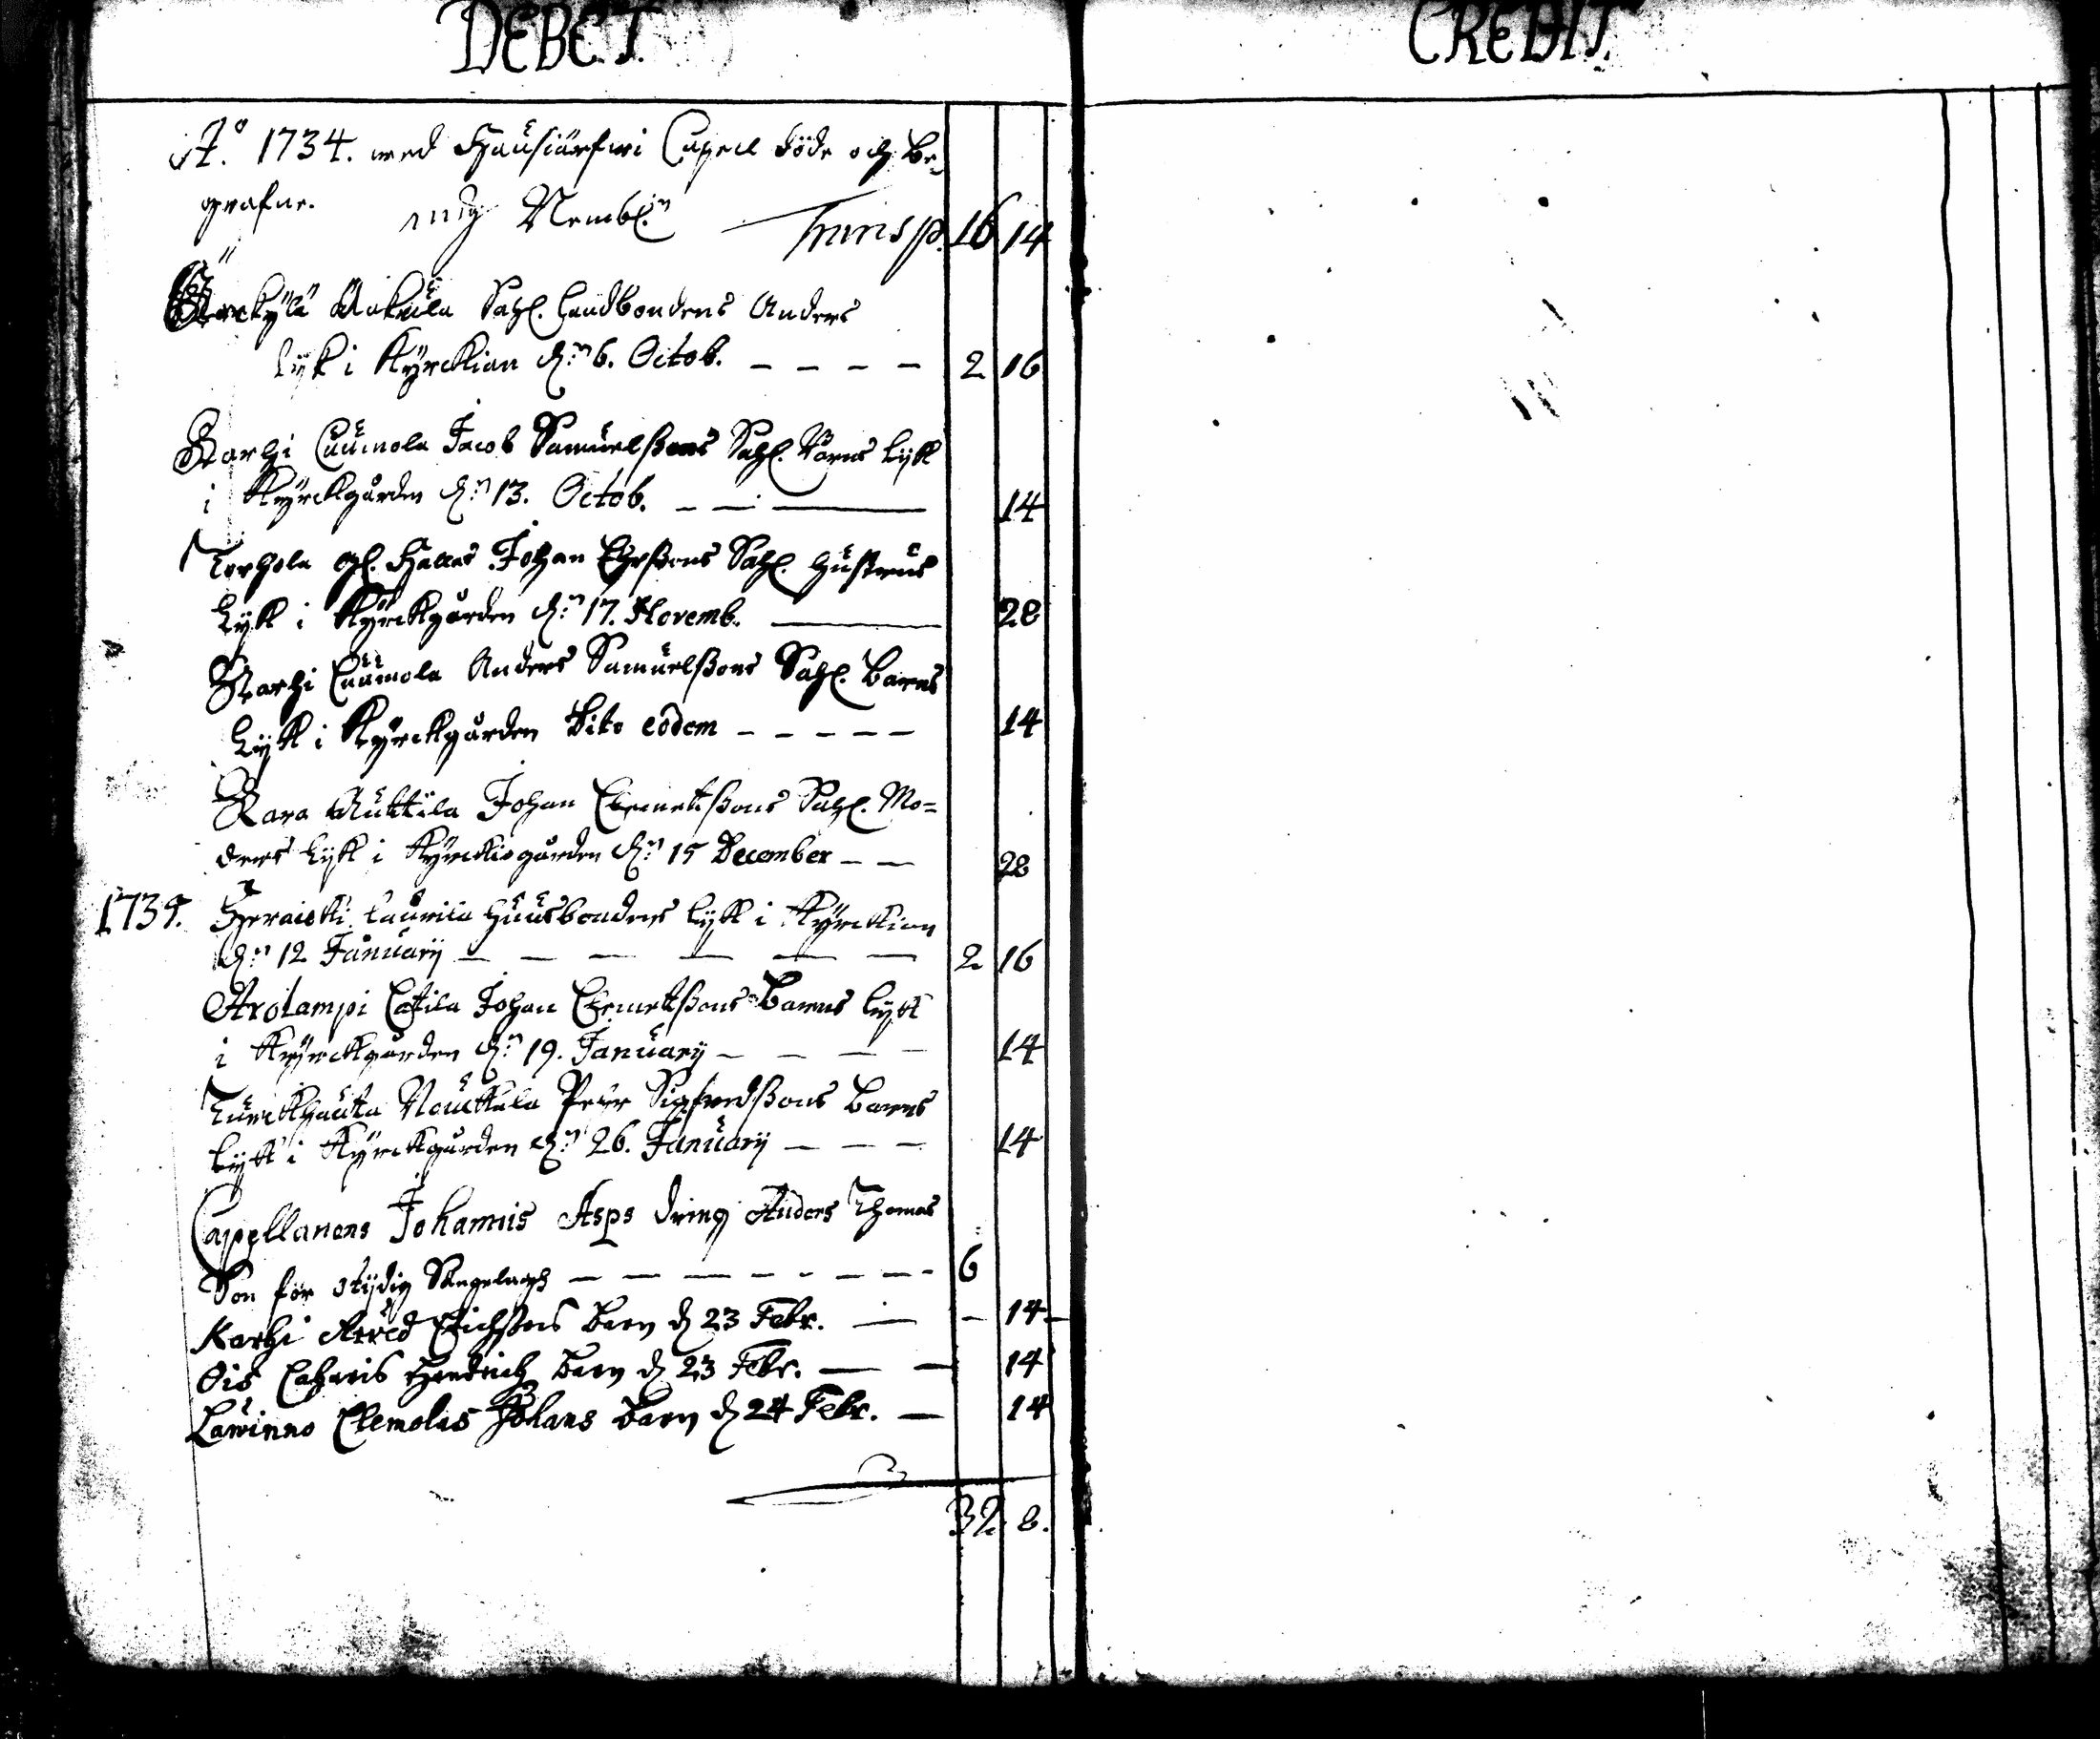 DEBET.
CREDIT.
A:o 1734. wed Hausiärfwi Capell döde och be-
grafne. Nembl:n Transp. 16 14
Seckylä Sahl. Landbondens Anders
lyk i Kyrckian d:n 6. Octob. - - - - 2 16
Karhi Cuumola Jacob Samuelssons Sahl. barns lijk
i Kyrckgården d:n 13. Octob. - - - 14
Torhola gl. Johan Ehrssons Sahl. hustrus
Lijk i Kyrckgården d:n 17. Novemb. - 28
Karhi Cuumola Anders Samuelssons Sahl. barns
Lijk i Kyrckgården Dito eodem - - - - - 14
Kara Kuttila Johan Clemetssons Sahl. Mo=
ders Lijk i Kyrckiogården d:n 15 December - - 28
1735. Heraiocki Laurila huusbondens lijk i Kyrckian
d:n 12 January - - - - - - 2 16
Arolampi Johan Clemetssons barns lijk
i Kyrckgården d:n 19. January - - - - 14
Turckhauta Nouckala Peer Sigfredssons barns
lijk i Kyrckgården d:n 26. January - - - 14
Capellanens Johannis Asps dräng Anders Thomas
Son för otijdig Sängelagh - - - - - - - - 6
Karhi Erichsons barn d 23 Febr. - - 14 -
Ois Hendrich barn d 23 Febr. - - 14
Lawinno Clemolas Johans barn d 24 Febr. - 14
32 8.